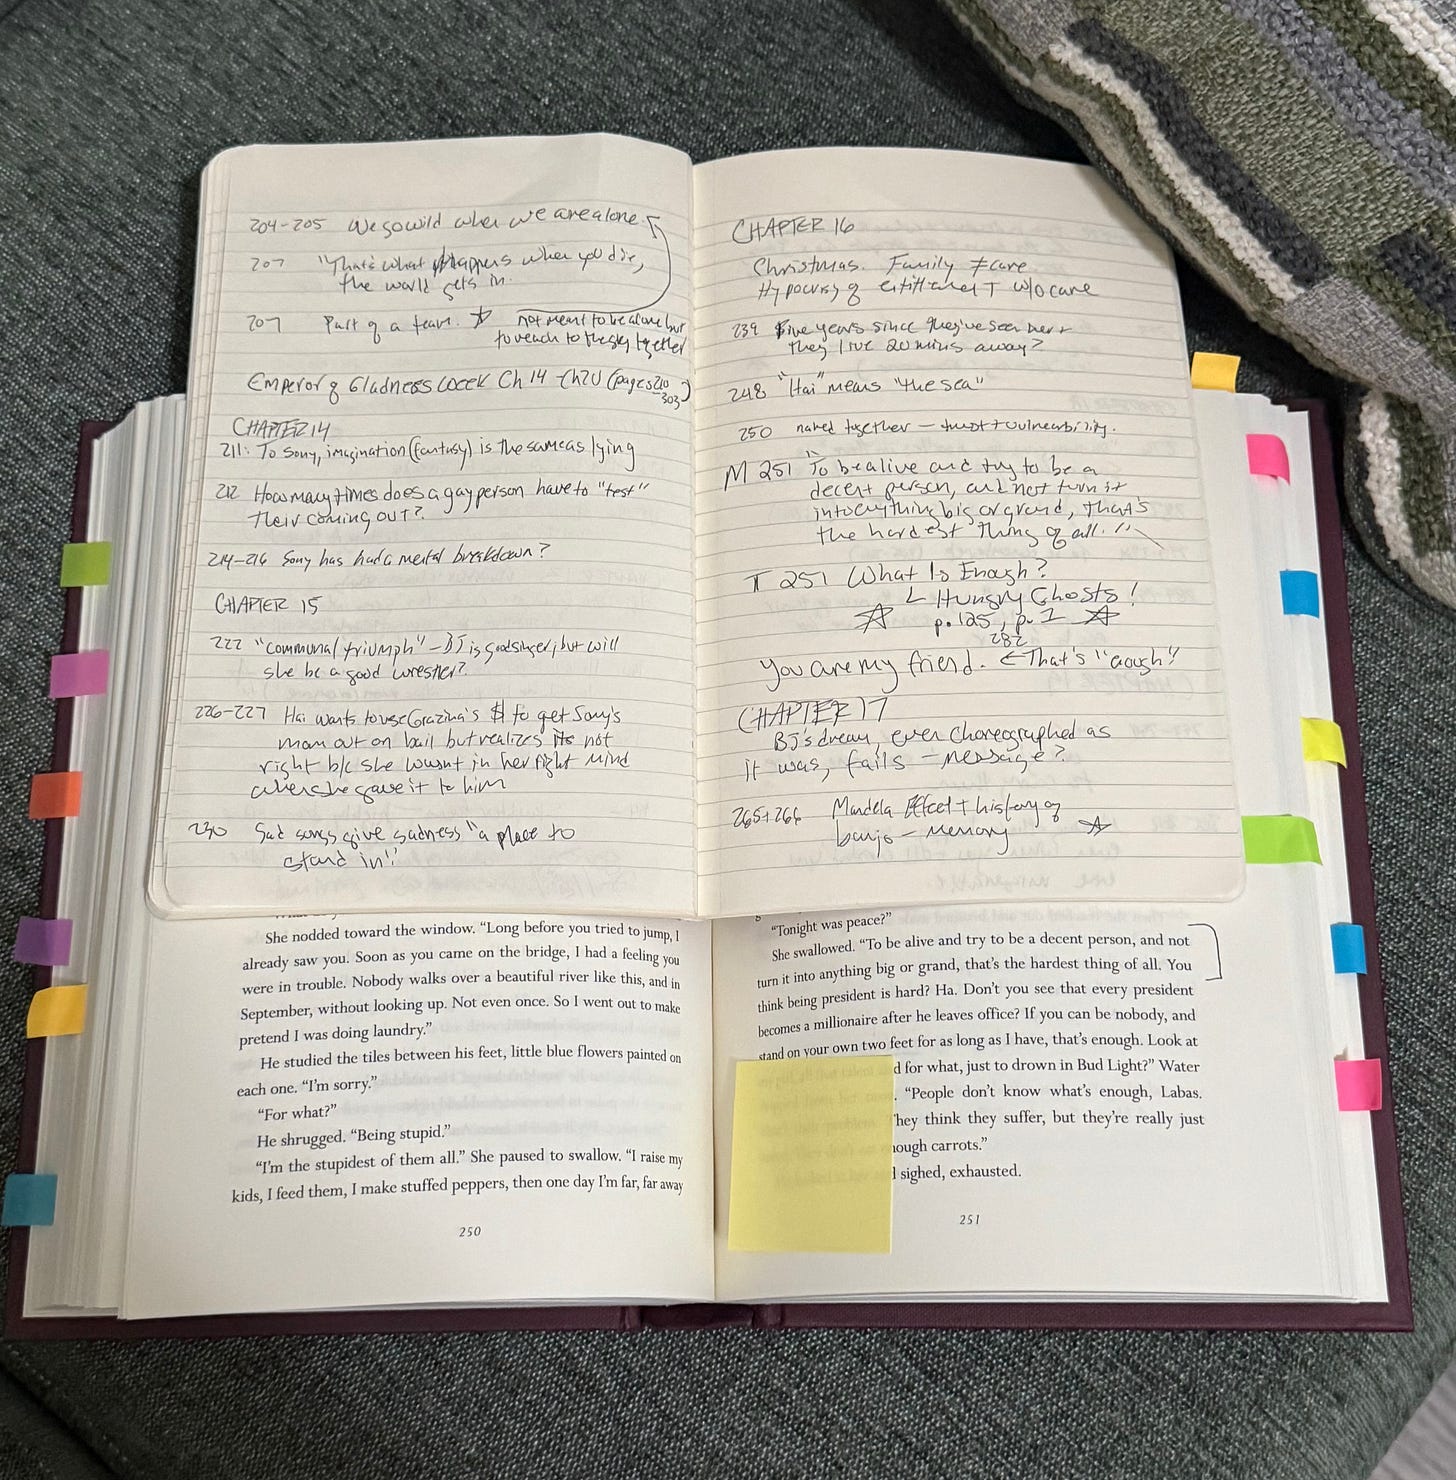 204-205 We go wild when we are alone.
207 "That's what happens when you die,
the world gets in.
207 Part of a team. not meant to be alone but
to reach to the sky together
Emperor of Gladness week Ch 14 - Ch 20 (pages 210
-303)
CHAPTER 14
211: To Sony, imagination (fantasy) is the same as lying
212 How many times does a gay person have to "test"
their coming out?
214-216 Sony has had a mental breakdown?
CHAPTER 15
222 "communal triumph" - BJ is good singer, but will
she be a good wrestler?
226-227 Hai wants to use Grazina's $ to get Sony's
mom out on bail but realizes its not
right b/c she wasn't in her right mind
when she gave it to him
230 Sad songs give sadness "a place to
stand in".
CHAPTER 16
Christmas. Family ≠ care
Hypocrisy of w/o care
239 Five years since they've seen her +
they live 20 mins away?
248 "Hai" means "the sea"
250 naked together - trust + vulnerability.
M 251 "To be alive and try to be a
decent person, and not turn it
into anything big or grand, that's
the hardest thing of all."
T 251 What Is Enough?
Hungry Ghosts!
p. 125, p. 1
282
You are my friend. ← That's "enough"!
CHAPTER 17
BJ's dream, even choreographed as
it was, fails - message?
265+266 Mandela Effect + history of
banjo - memory
She nodded toward the window. "Long before you tried to jump, I
already saw you. Soon as you came on the bridge, I had a feeling you
were in trouble. Nobody walks over a beautiful river like this, and in
September, without looking up. Not even once. So I went out to make
pretend I was doing laundry."
He studied the tiles between his feet, little blue flowers painted on
each one. "I'm sorry."
"For what?"
He shrugged. "Being stupid."
"I'm the stupidest of them all." She paused to swallow. "I raise my
kids, I feed them, I make stuffed peppers, then one day I'm far, far away
250
"Tonight was peace?"
She swallowed. "To be alive and try to be a decent person, and not
turn it into anything big or grand, that's the hardest thing of all. You
think being president is hard? Ha. Don't you see that every president
becomes a millionaire after he leaves office? If you can be nobody, and
stand on your own two feet for as long as I have, that's enough. Look at
for what, just to drown in Bud Light?" Water
"People don't know what's enough, Labas.
They think they suffer, but they're really just
carrots."
sighed, exhausted.
251